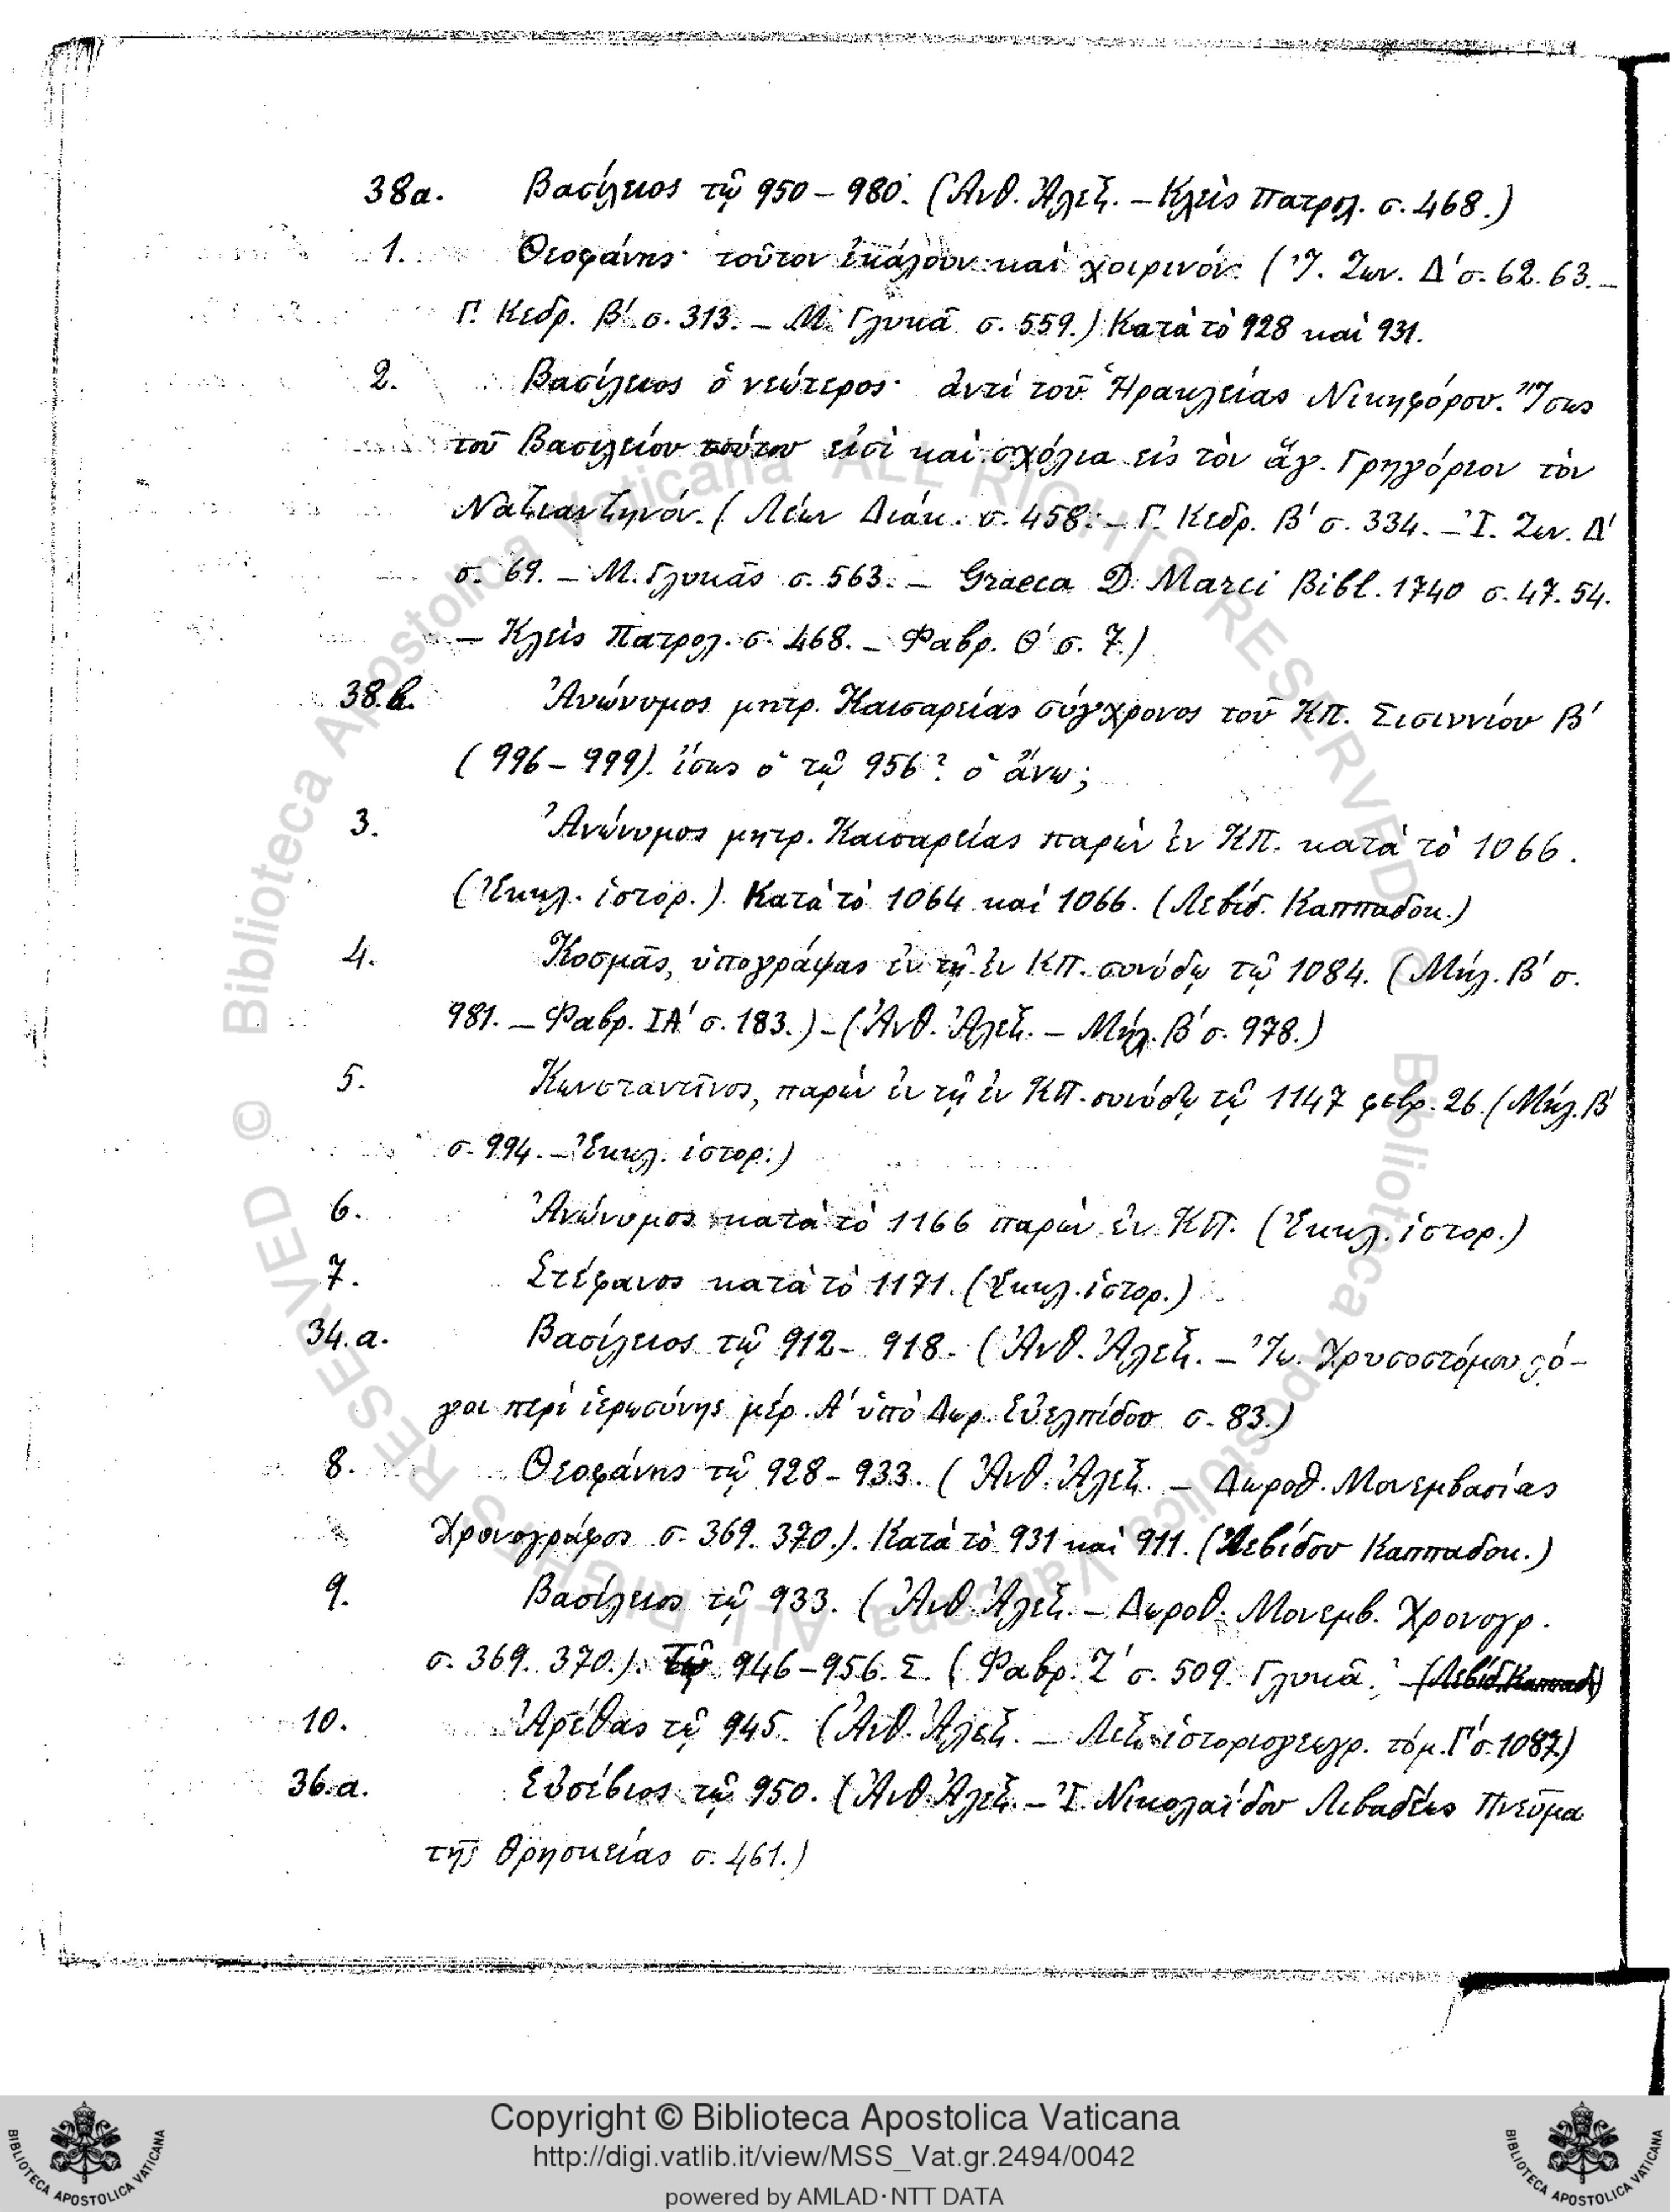 38α. Βασίλειος τῷ 950 – 980. (Ἀνθ. Ἀλεξ. – Κλεὶς Πατρολ. σ. 468.)
1. Θεοφάνης· τοῦτον ἐκάλουν καὶ χοιρινόν. (Ἰ. Ζων. Δ΄ σ. 62. 63. –
Γ. Κεδρ. Β΄. σ. 313. – Μ. Γλυκᾶ σ. 559.) Κατὰ τὸ 928 καὶ 931.
2. Βασίλειος ὁ νεώτερος· ἀντὶ τοῦ Ἡρακλείας Νικηφόρου. Ἴσως
τοῦ Βασιλείου τούτου εἰσὶ καὶ σχόλια εἰς τὸν ἅγ. Γρηγόριον τὸν
Ναζιανζηνόν. (Λέων Διάκ. σ. 458. – Γ. Κεδρ. Β΄ σ. 334. – Ἰ. Ζων. Δ΄
σ. 69. – Μ. Γλυκᾶς σ. 563. – Graeca D. Marci Bibl. 1740 σ. 47. 54.
– Κλεὶς Πατρολ. σ. 468. – Φαβρ. Θ΄ σ. 7.)
38.β. Ἀνώνυμος μητρ. Καισαρείας σύγχρονος τοῦ ΚΠ. Σισιννίου Β΄
(996 – 999). ἴσως ὁ τῷ 956? ὁ ἄνω;
3. Ἀνώνυμος μητρ. Καισαρείας παρὼν ἐν ΚΠ. κατὰ τὸ 1066.
(Ἐκκλ. ἱστορ.). Κατὰ τὸ 1064 καὶ 1066. (Λεβίδ. Καππαδοκ.)
4. Κοσμᾶς, ὑπογράψας ἐν τῇ ἐν ΚΠ. συνόδῳ τῷ 1084. (Μήλ. Β΄ σ.
981. – Φαβρ. ΙΑ΄ σ. 183.) – (Ἀνθ. Ἀλεξ. – Μήλ. Β΄ σ. 978.)
5. Κωνσταντῖνος, παρὼν ἐν τῇ ἐν ΚΠ. συνόδῳ τῷ 1147 φεβρ. 26. (Μήλ. Β΄
σ. 994. – Ἐκκλ. ἱστορ.)
6. Ἀνώνυμος κατὰ τὸ 1166 παρὼν ἐν ΚΠ. (Ἐκκλ. ἱστορ.)
7. Στέφανος κατὰ τὸ 1171. (Ἐκκλ. ἱστορ.)
34.α. Βασίλειος τῷ 912 – 918. (Ἀνθ. Ἀλεξ. – Ἰω. Χρυσοστόμου λό-
γοι περὶ ἱερωσύνης μέρ. Α΄ ὑπὸ Δωρ. Εὐελπίδου σ. 83.)
8. Θεοφάνης τῷ 928 – 933. (Ἀνθ. Ἀλεξ. – Δωροθ. Μονεμβασίας
Χρονογράφος σ. 369. 370.). Κατὰ τὸ 931 καὶ 911. (Λεβίδου Καππαδοκ.)
9. Βασίλειος τῷ 933. (Ἀνθ. Ἀλεξ. – Δωροθ. Μονεμβ. Χρονογρ.
σ. 369. 370.). Τῷ 946 – 956. Σ. (Φαβρ. Ζ΄ σ. 509. Γλυκᾶ? (Λεβίδ. Καππαδ)
10. Ἀρέθας τῷ 945. (Ἀνθ. Ἀλεξ. – Λεξ. ἱστοριογεωγρ. τόμ. Γ΄ σ. 1087.)
36.α. Εὐσέβιος τῷ 950. (Ἀνθ. Ἀλεξ. – Ἰ. Νικολαΐδου Λεβαδέως Πνεῦμα
τῆς θρησκείας σ. 461.)
© Biblioteca Apostolica Vaticana ALL RIGHTS RESERVED
© Biblioteca Apostolica Vaticana ALL RIGHTS RESERVED
Copyright © Biblioteca Apostolica Vaticana
http://digi.vatlib.it/view/MSS_Vat.gr.2494/0042
powered by AMLAD·NTT DATA
BIBLIOTECA APOSTOLICA VATICANA
BIBLIOTECA APOSTOLICA VATICANA